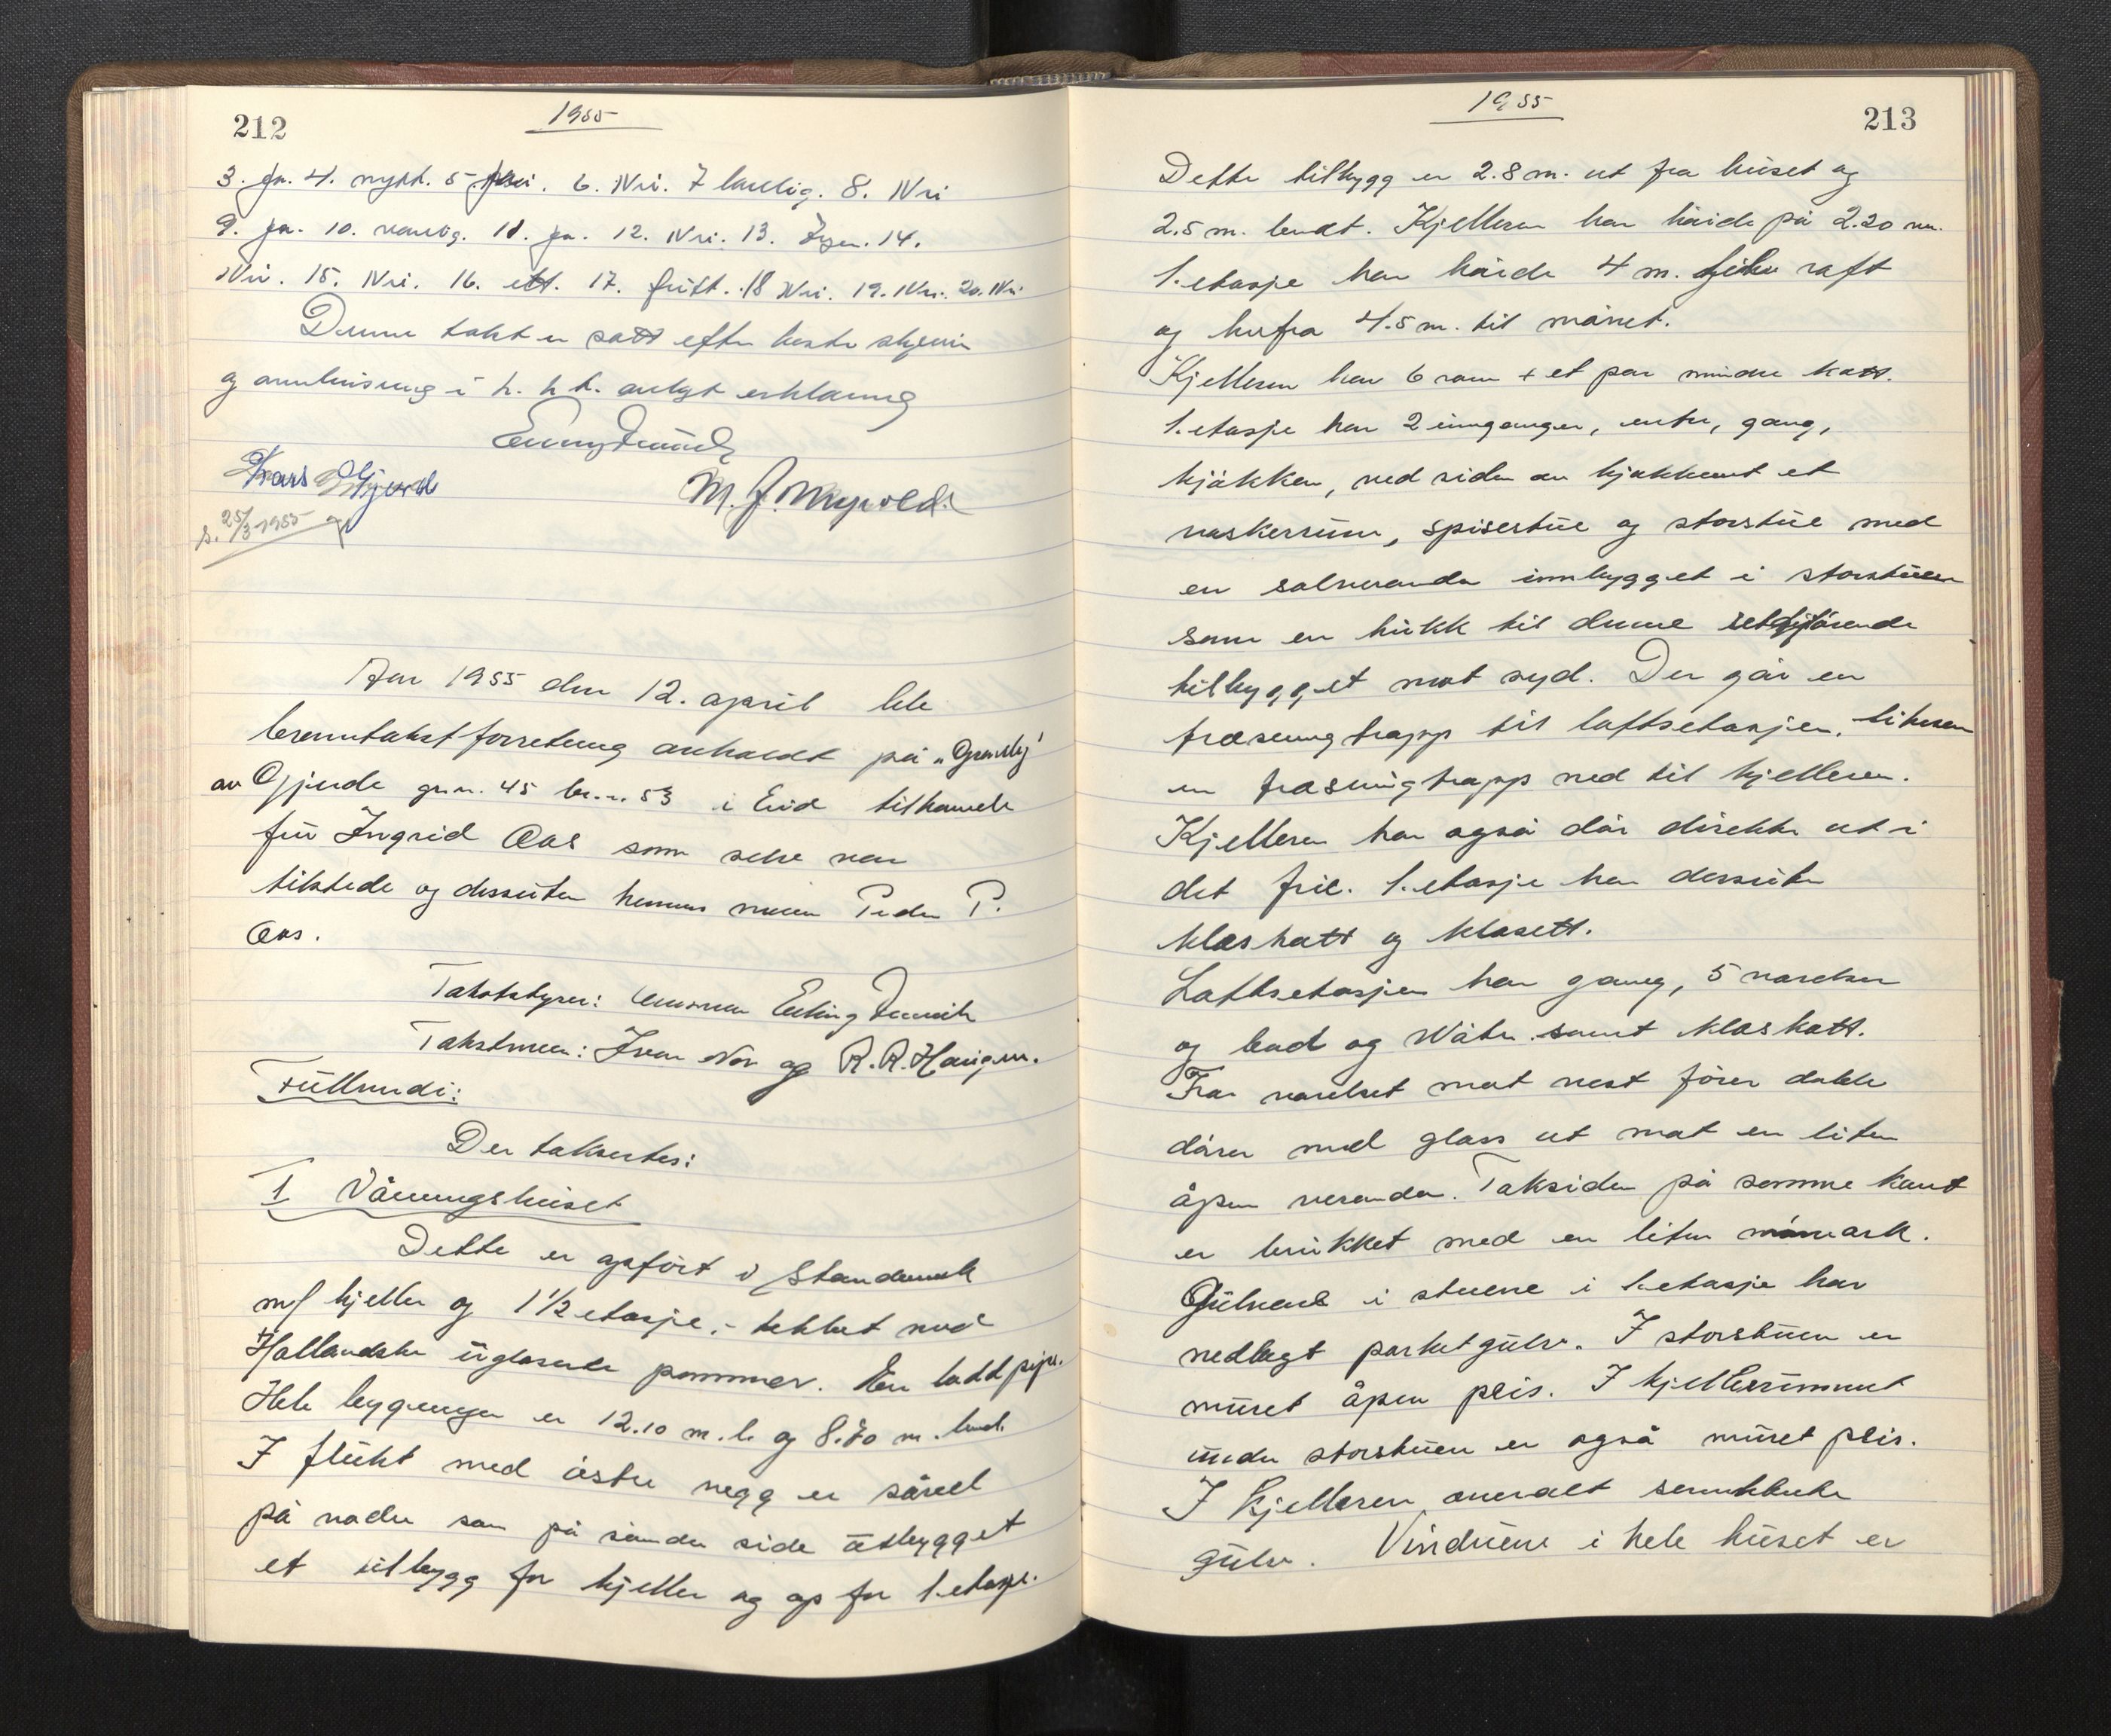 212
1955
3. Ja. 4. nytt. 5 Nei. 6. Nei. 7 lovlig. 8. Nei
9. Ja. 10. vanlig. 11. Ja. 12. Nei. 13. Ingen. 14.
Nei. 15. Nei. 16. ett. 17. fritt. 18 Nei. 19. Nei. 20. Nei
Denne takst er satt efter beste skjønn
og overbevisning i h. h. t. avlagt erklæring
Erling
Lars Gjerde
M. J. Myrvold.
s. 25/3-1955
Aar 1955 den 12. april ble
branntakstforretning avholdt på „Granly"
av Gjerde gr.n. 45 br.n. 53 i Eid tilhørende
frú Ingrid Aas som selv var
tilstede og dessúten hennes mann Peder P.
Aas.
Takstbyrer: Erling
Takstmenn: Ivar Nor og R. R. Haúgen.
Fúllmdi:
Der taksertes:
I Våningshúset
Dette er opført i Standerverk
m/ kjeller og 1 1/2 etasje, - tekket med
Hollandske úglaserte panner. En loddpipe.
Hele bygningen er 12.10 m. l. og 8.70 m. bred.
I flúkt med østre vegg er såvel
på nordre som på søndre side útbygget
et tilbygg for kjeller og op for 1. etasje.
1955
213
Dette tilbygg er 2.8 m. ut fra húset og
2.5 m. bredt. Kjelleren har høide på 2.20 m.
1. etasje har høide 4 m. til raft
og herfra 4.5 m. til mønet.
Kjelleren har 6 rom + et par mindre kott.
1. etasje har 2 innganger, entre, gang,
kjøkken, ved siden av kjøkkenet et
vaskerúm, spisestúe og storstúe med
en solveranda innbygget i storstúen
som en búkk til denne
tilbygget mot syd. Der går en
trasving trapp til loftsetasjen, likesom
en trasving trapp ned til kjelleren.
Kjelleren har også dør direkte ut i
det frie. 1. etasje har dessúten
kleskott og klosett.
Loftsetasjen har gang, 5 værelser
og bad og Water. samt kleskott.
Fra værelset mot vest fører doble
dører med glass ut mot en liten
åpen veranda. Taksiden på samme kant
er brúkket med en liten ark.
Gúlvene i stúene i 1. etasje har
nedlagt parketgúlv. I storstúen er
múret åpen peis. I kjellerrúmmet
únder storstúen er også múret peis.
I kjelleren overalt sementstøpte
gúlv. Vindúene i hele húset er